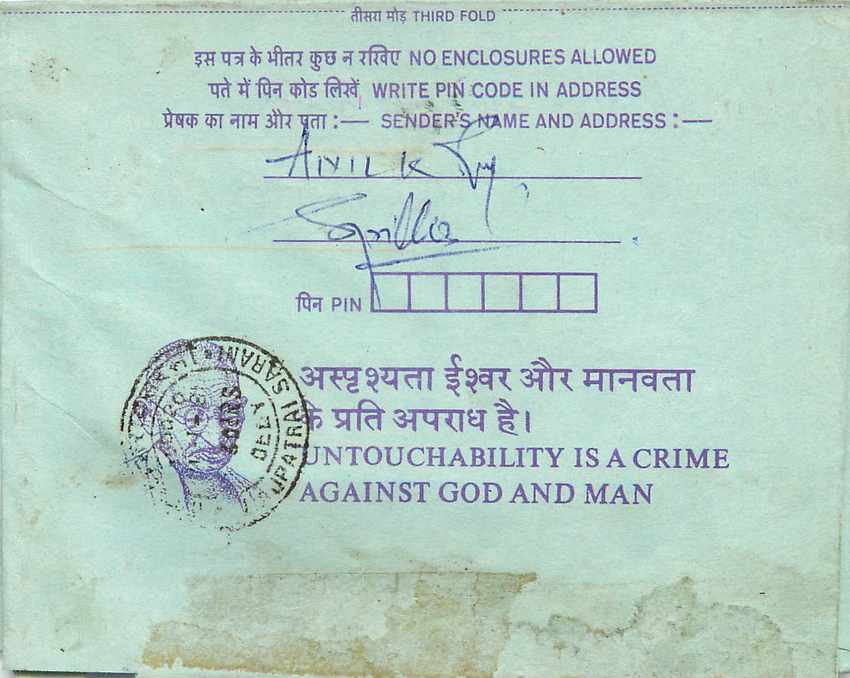 तीसरा मोड़ THIRD FOLD
इस पत्र के भीतर कुछ न रखिए NO ENCLOSURES ALLOWED
पते में पिन कोड लिखें WRITE PIN CODE IN ADDRESS
प्रेषक का नाम और पता :— SENDER'S NAME AND ADDRESS :—
पिन PIN
अस्पृश्यता ईश्वर और मानवता
के प्रति अपराध है।
UNTOUCHABILITY IS A CRIME
AGAINST GOD AND MAN
SARANI